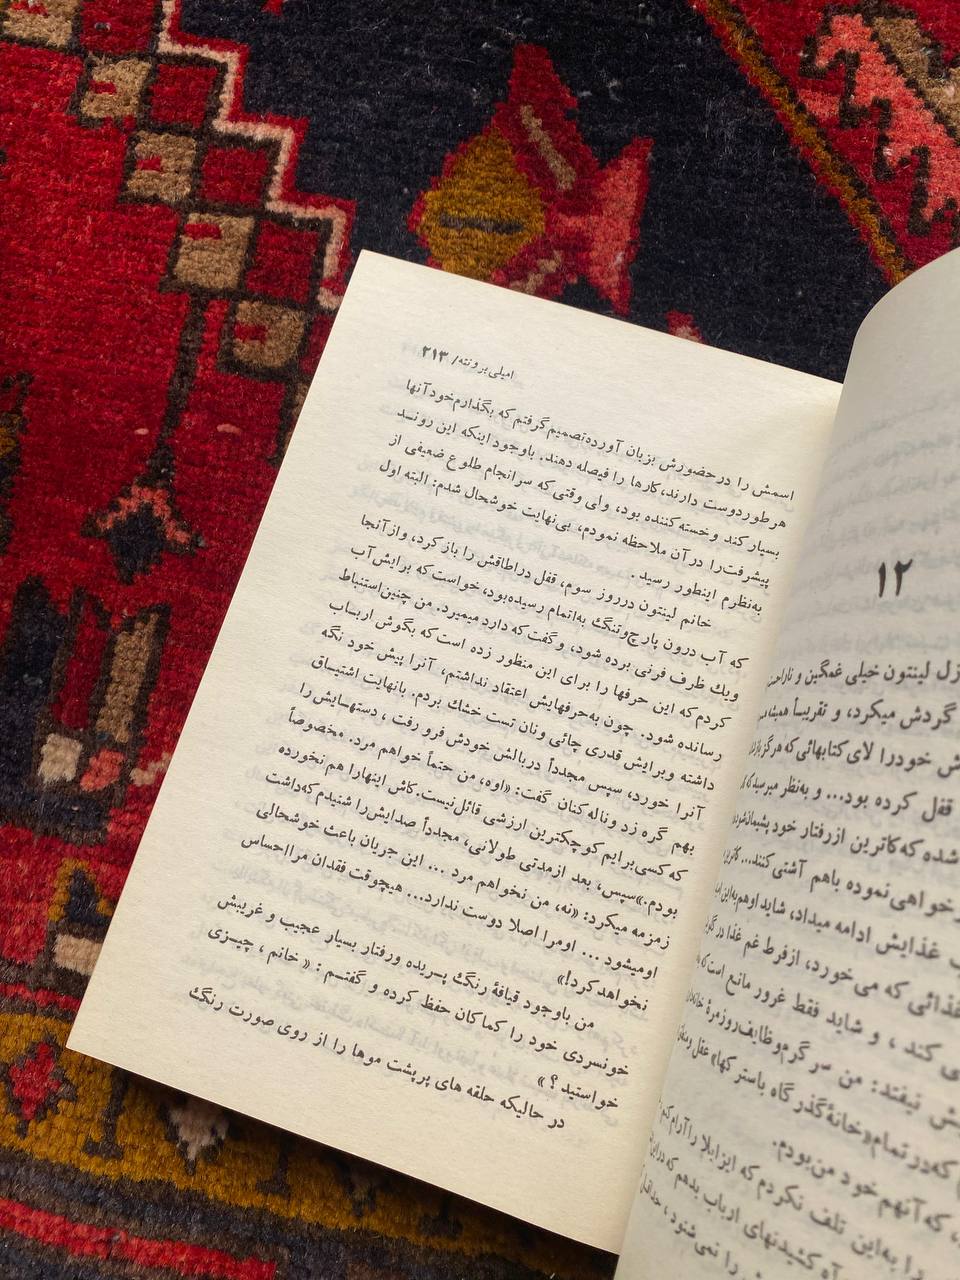 ۱۲
لینتون خیلی غمگین و
گردش میکرد، و تقریباً همیشه
خودرا لای کتابهائی که هرگز
قفل کرده بود... و به‌نظر میرسید که
شده که کاترین ازرفتار خود پشیمان شود
نموده باهم آشتی کنند...
غذایش ادامه میداد، شاید اوهم به‌این
غذائی که می‌خورد، ازفرط غم غذا در
کند ، و شاید فقط غرور مانع است که
نیفتد: من سرگرم وظایف روزمرهٔ
که‌در تمام «خانهٔ گذرگاه باسترکها» عقل
که آنهم خود من بودم.
تلف نکردم که ایزابلا را آرام کنم
کشیدنهای ارباب بدهم که در
را نمی‌شنود ،
امیلی برونته/ ۲۱۳
اسمش را در حضورش بزبان آورده تصمیم گرفتم که بگذارم خود آنها
هرطور دوست دارند، کارها را فیصله دهند. باوجود اینکه این روند
بسیار کند وخسته کننده بود، ولی وقتی که سرانجام طلوع ضعیفی از
پیشرفت را در آن ملاحظه نمودم، بی‌نهایت خوشحال شدم: البته اول
به‌نظرم اینطور رسید.
خانم لینتون در روز سوم، قفل در اطاقش را باز کرد، و از آنجا
که آب درون پارچ وتنگ به‌اتمام رسیده بود، خواست که برایش آب
ویك ظرف فرنی برده شود، و گفت که دارد میمیرد. من چنین استنباط
کردم که این حرفها را برای این منظور زده است که بگوش ارباب
رسانده شود. چون به‌حرفهایش اعتقاد نداشتم، آنرا پیش خود نگه
داشته و برایش قدری چائی ونان تست خشك بردم. بانهایت اشتیاق
آنرا خورد، سپس مجدداً دربالش خودش فرو رفت ، دستهایش را
بهم گره زد و ناله‌کنان گفت: «اوه، من حتماً خواهم مرد. مخصوصاً
که کسی برایم کوچکترین ارزشی قائل نیست. کاش اینهارا هم نخورده
بودم.» سپس، بعد ازمدتی طولانی، مجدداً صدایش را شنیدم که داشت
زمزمه میکرد: «نه، من نخواهم مرد ... این جریان باعث خوشحالی
اومیشود ... اومرا اصلا دوست ندارد... هیچوقت فقدان مرااحساس
نخواهد کرد!»
من باوجود قیافهٔ رنگ پریده ورفتار بسیار عجیب و غریبش
خونسردی خود را کماکان حفظ کرده و گفتم: « خانم ، چیزی
خواستید ؟ »
در حالیکه حلقه های پرپشت موها را از روی صورت رنگ